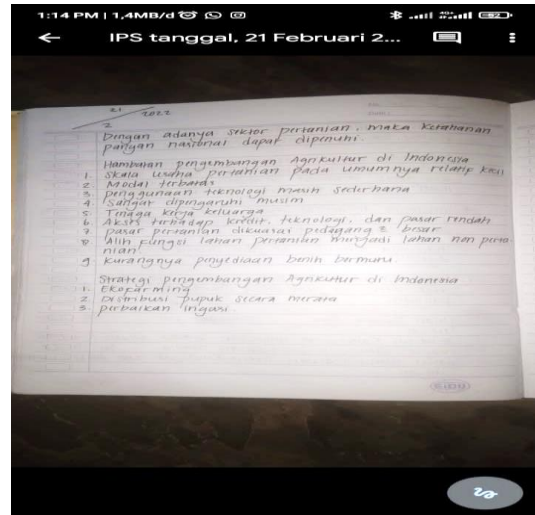 1:14 PM | 1,4MB/d
4G+
82
IPS tanggal, 21 Februari 2...
21
2 2022
Dengan adanya sektor pertanian, maka Ketahanan
pangan nasional dapat dipenuhi.
Hambatan pengembangan Agrikultur di Indonesia
1. Skala usaha pertanian pada umumnya relatif kecil
2. Modal terbatas
3. penggunaan teknologi masih sederhana
4. Sangat dipengaruhi musim
5. Tenaga kerja keluarga
6. Akses terhadap kredit, teknologi, dan pasar rendah
7. pasar pertanian dikuasai pedagang2 besar
8 Alih fungsi lahan pertanian menjadi lahan non perta-
nian
9. Kurangnya penyediaan benih bermutu.
Strategi pengembangan Agrikultur di Indonesia
1. Ekofarming
2. Distribusi pupuk secara merata
3. perbaikan irigasi.